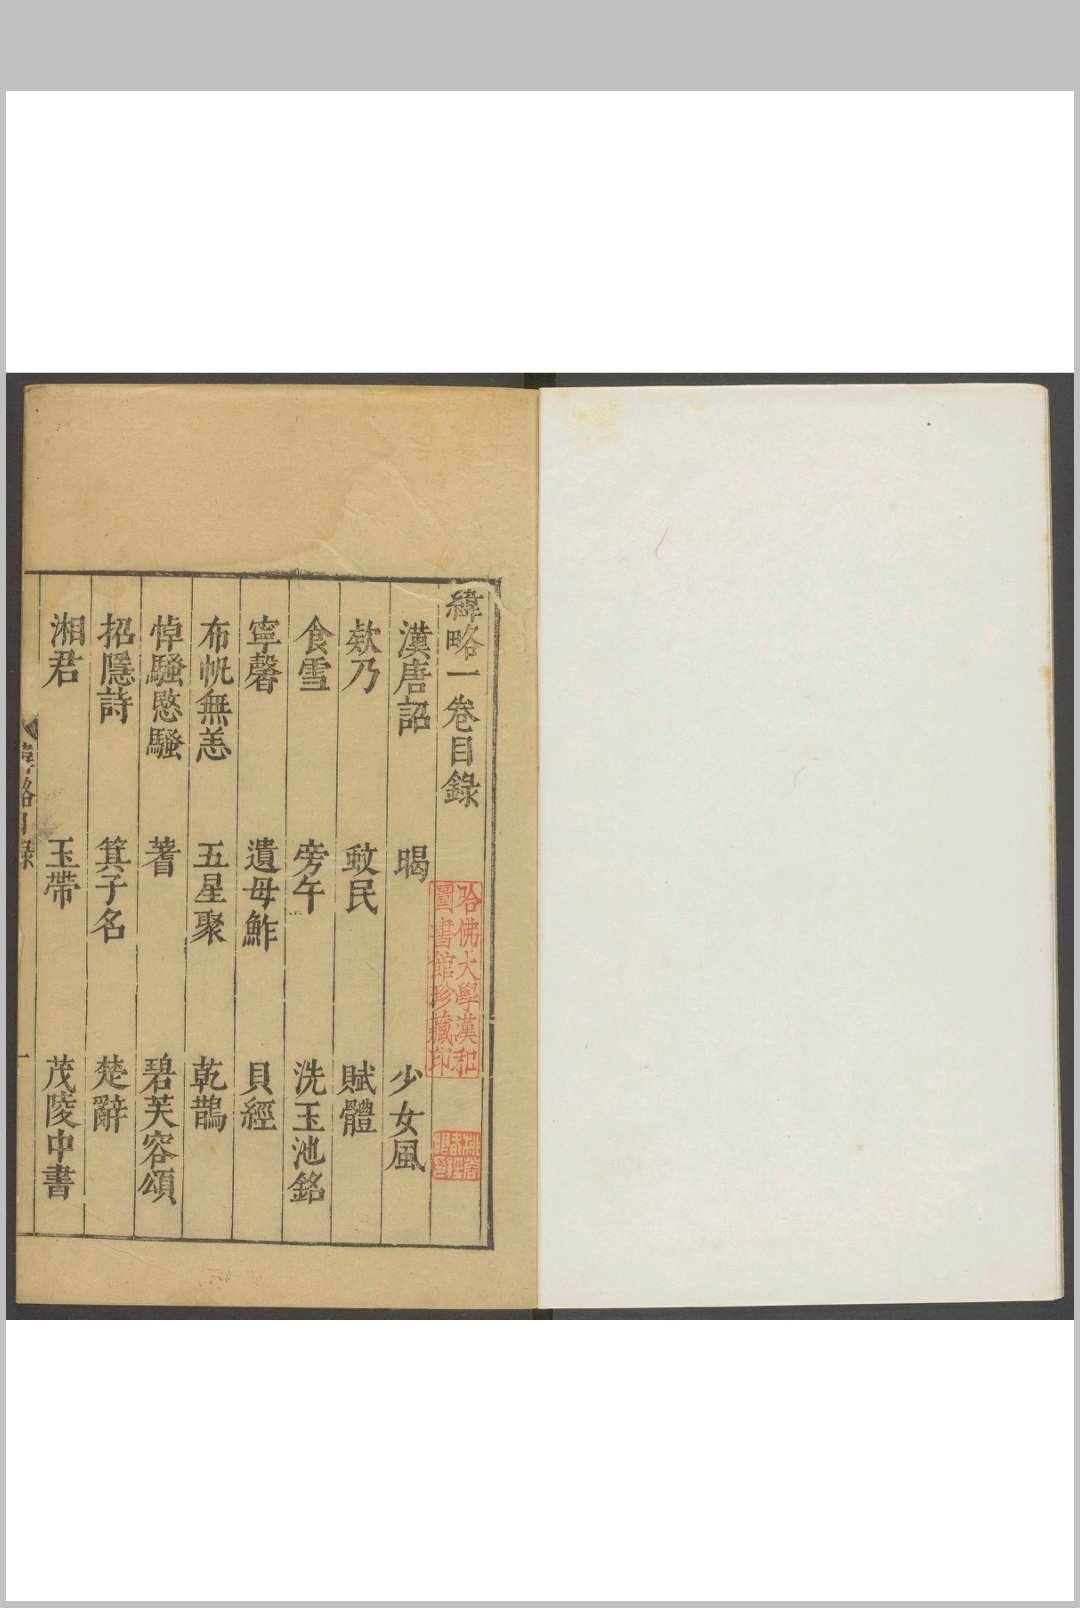 緯略一卷目錄
漢唐詔 暍 少女風
欸乃 蚊民 賦體
食雪 旁午 洗玉池銘
寧馨 遺母鮓 貝經
布帆無恙 五星聚 乾鵲
悼騷愍騷 蓍 碧芙容頌
招隱詩 箕子名 楚辭
湘君 玉帶 茂陵中書
緯略目錄
一
哈佛大學漢和
圖書館珍藏印